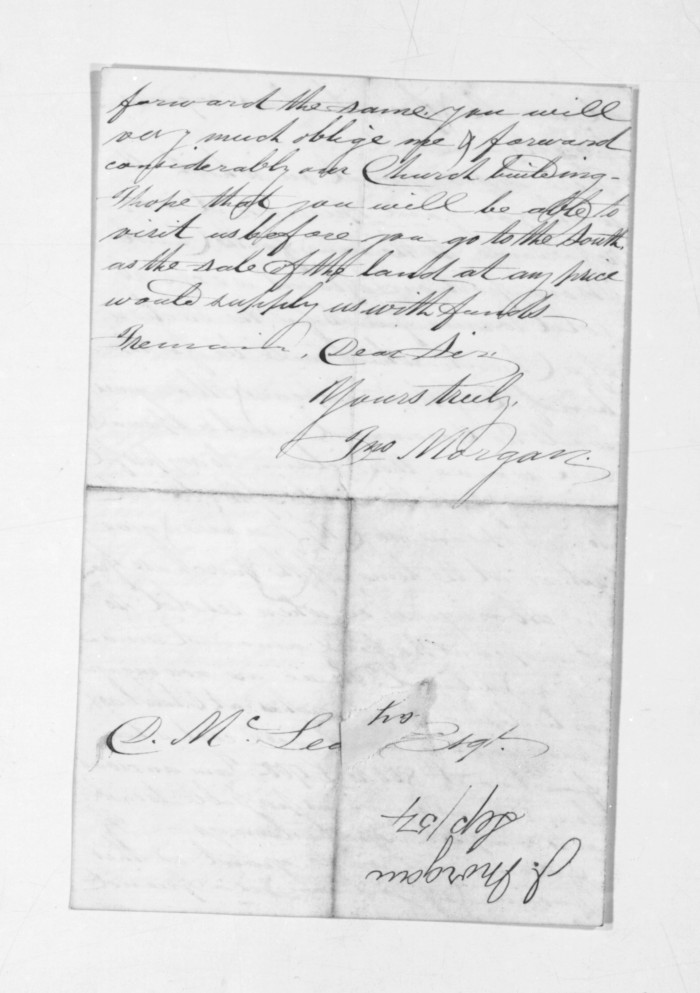 forward the same. you will
very much oblige me & forward
considerably our Church building –
I hope that you will be able to
visit us before you go to the South.
as the sale of the land at any price
would supply us with funds –
I remain, Dear Sir
Yours truly,
Jno Morgan.
D. McLean Esqr.
J. Morgan
Sep/54